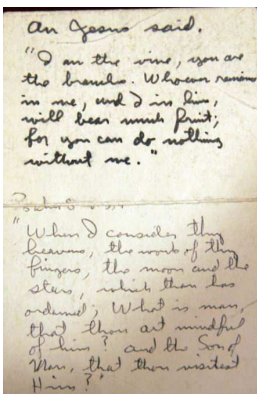 As Jesus said.
"I am the vine, you are
the branches. Whoever remains
in me, and I in him,
will bear much fruit;
for you can do nothing
without me."
Psalm 8:3,4
"When I consider thy
heavens, the work of thy
fingers, the moon and the
stars, which thou has
ordained; What is man,
that thou art mindful
of him? and the Son of
Man, that thou visitest
Him?"